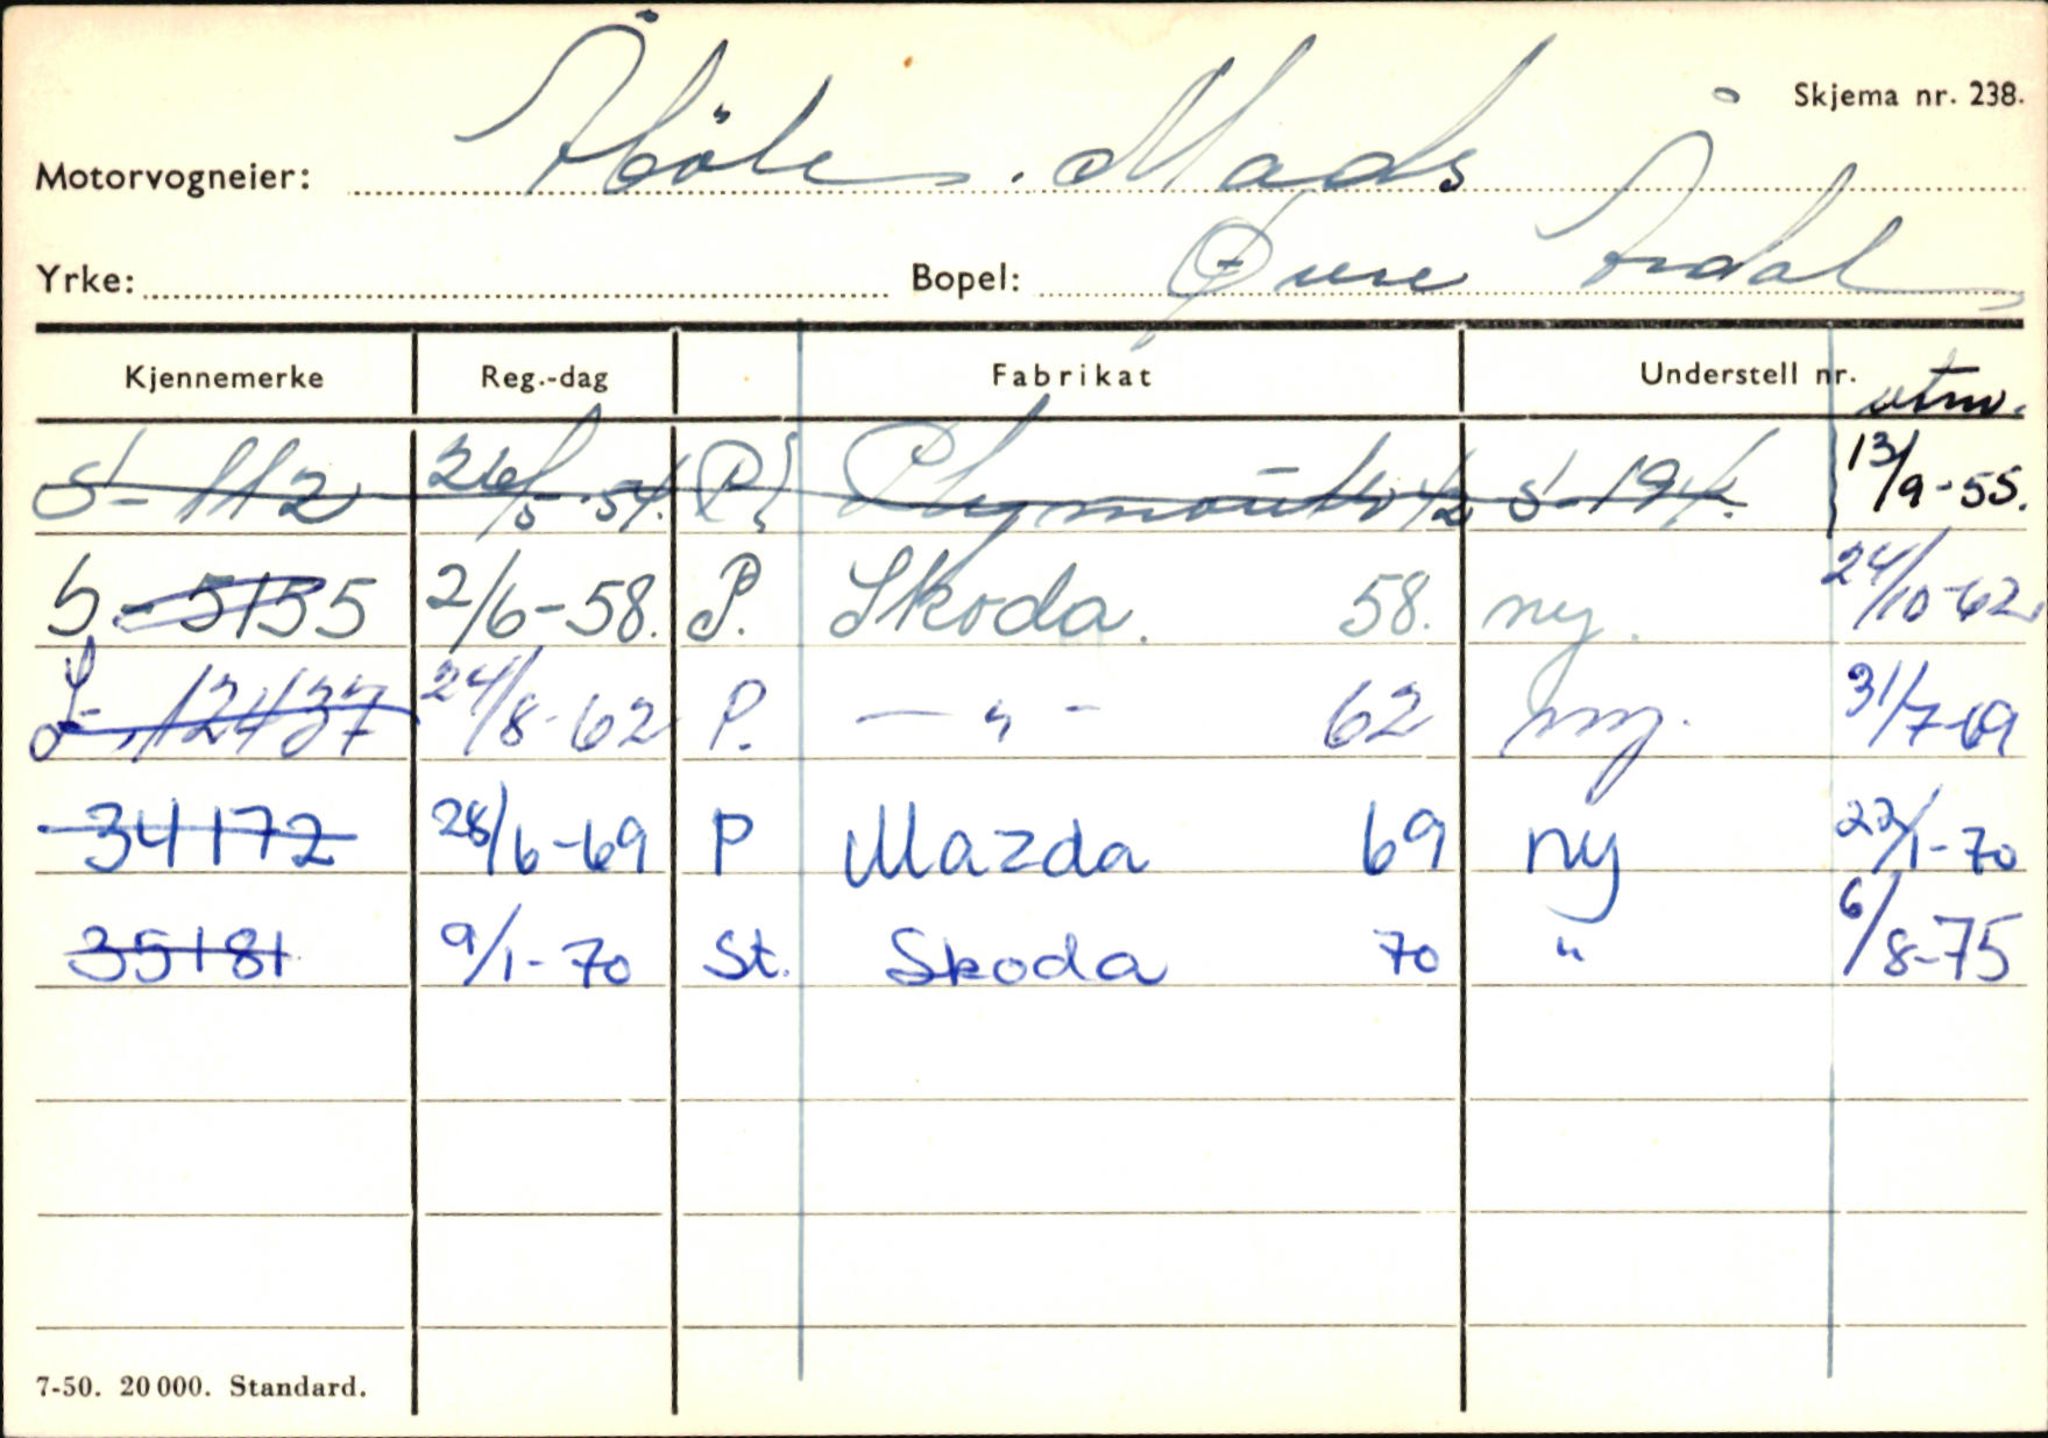 Skjema nr. 238.
Motorvogneier: Höle. Mads
Yrke: Bopel: Øvre Årdal
Kjennemerke Reg.-dag Fabrikat Understell nr. utm.
S-112 26/5-54. P. Plymouth 42 S-194. 13/9-55.
S-5155 2/6-58. P. Skoda. 58. ny. 24/10-62.
S-12437 24/8-62 P. — „ - 62 ny. 31/7-69
34172 28/6-69 P Mazda 69 ny 22/1-70
35181 9/1-70 St. Skoda 70 " 6/8-75
7-50. 20 000. Standard.